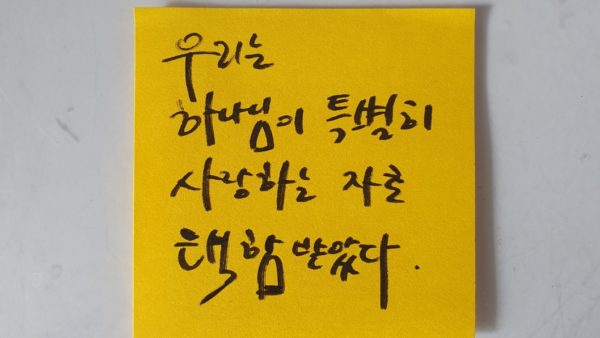 우리는
하나님이 특별히
사랑하는 자로
택함 받았다.